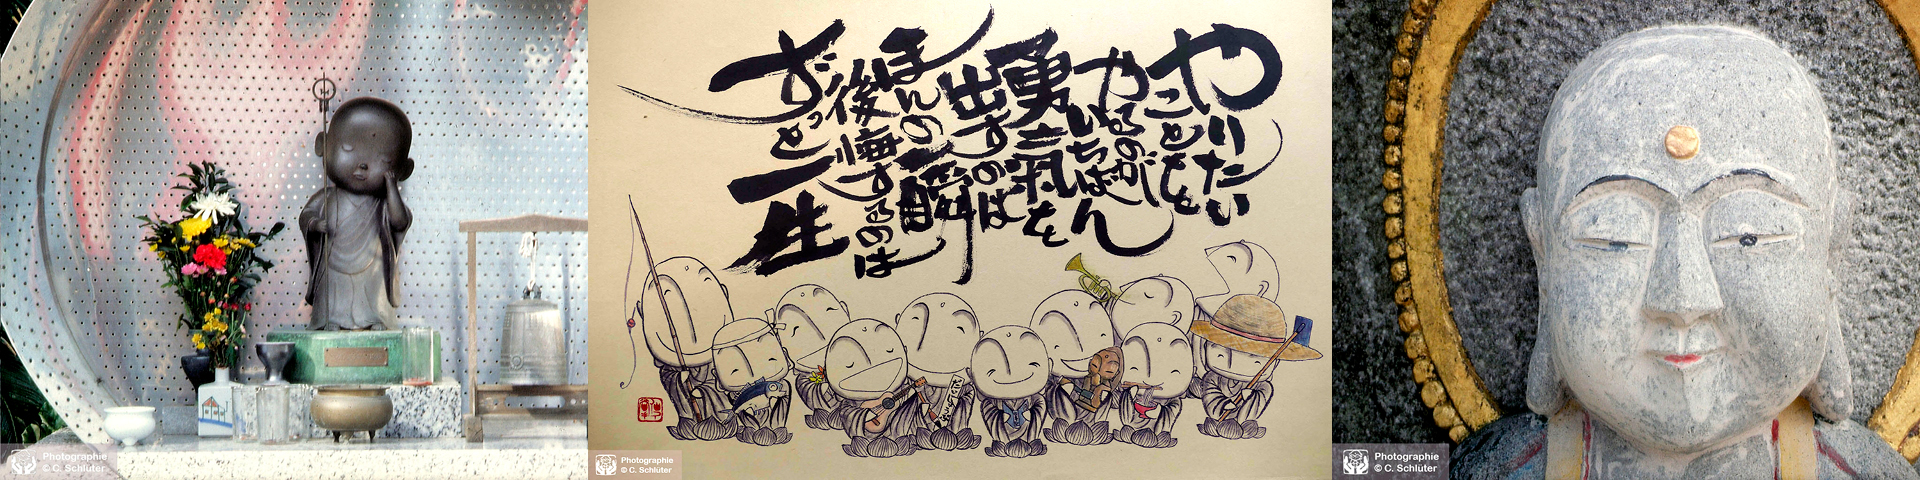 やりたい
ことを
やるのが
いちばん
勇氣を
出すのは
ほんの一瞬
後悔するのは
ずっと一生
Photographie
© C. Schlüter
Photographie
© C. Schlüter
Photographie
© C. Schlüter